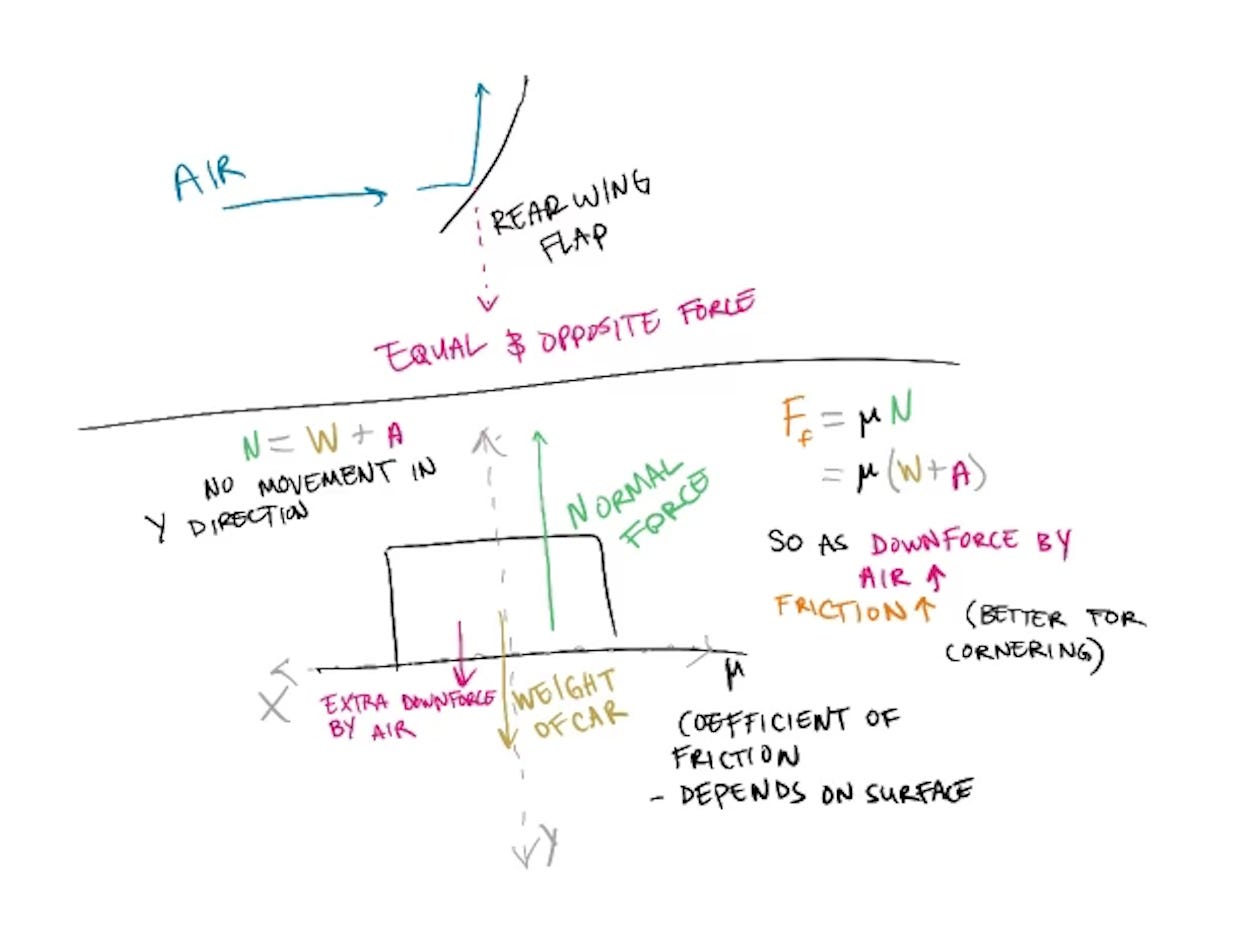 AIR
REAR WING
FLAP
EQUAL & OPPOSITE FORCE
N = W + A
NO MOVEMENT IN
Y DIRECTION
NORMAL
FORCE
F_f = μN
= μ(W+A)
SO AS DOWNFORCE BY
AIR ↑
FRICTION ↑ (BETTER FOR
CORNERING)
X
EXTRA DOWNFORCE
BY AIR
WEIGHT
OF CAR
μ
COEFFICIENT OF
FRICTION
- DEPENDS ON SURFACE
Y